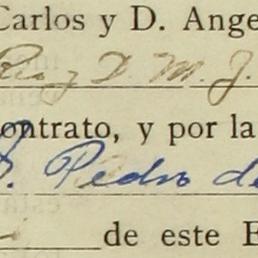 Carlos y D. Ange
Rui y D. M. J.
ontrato, y por la
D. Pedro de
de este E